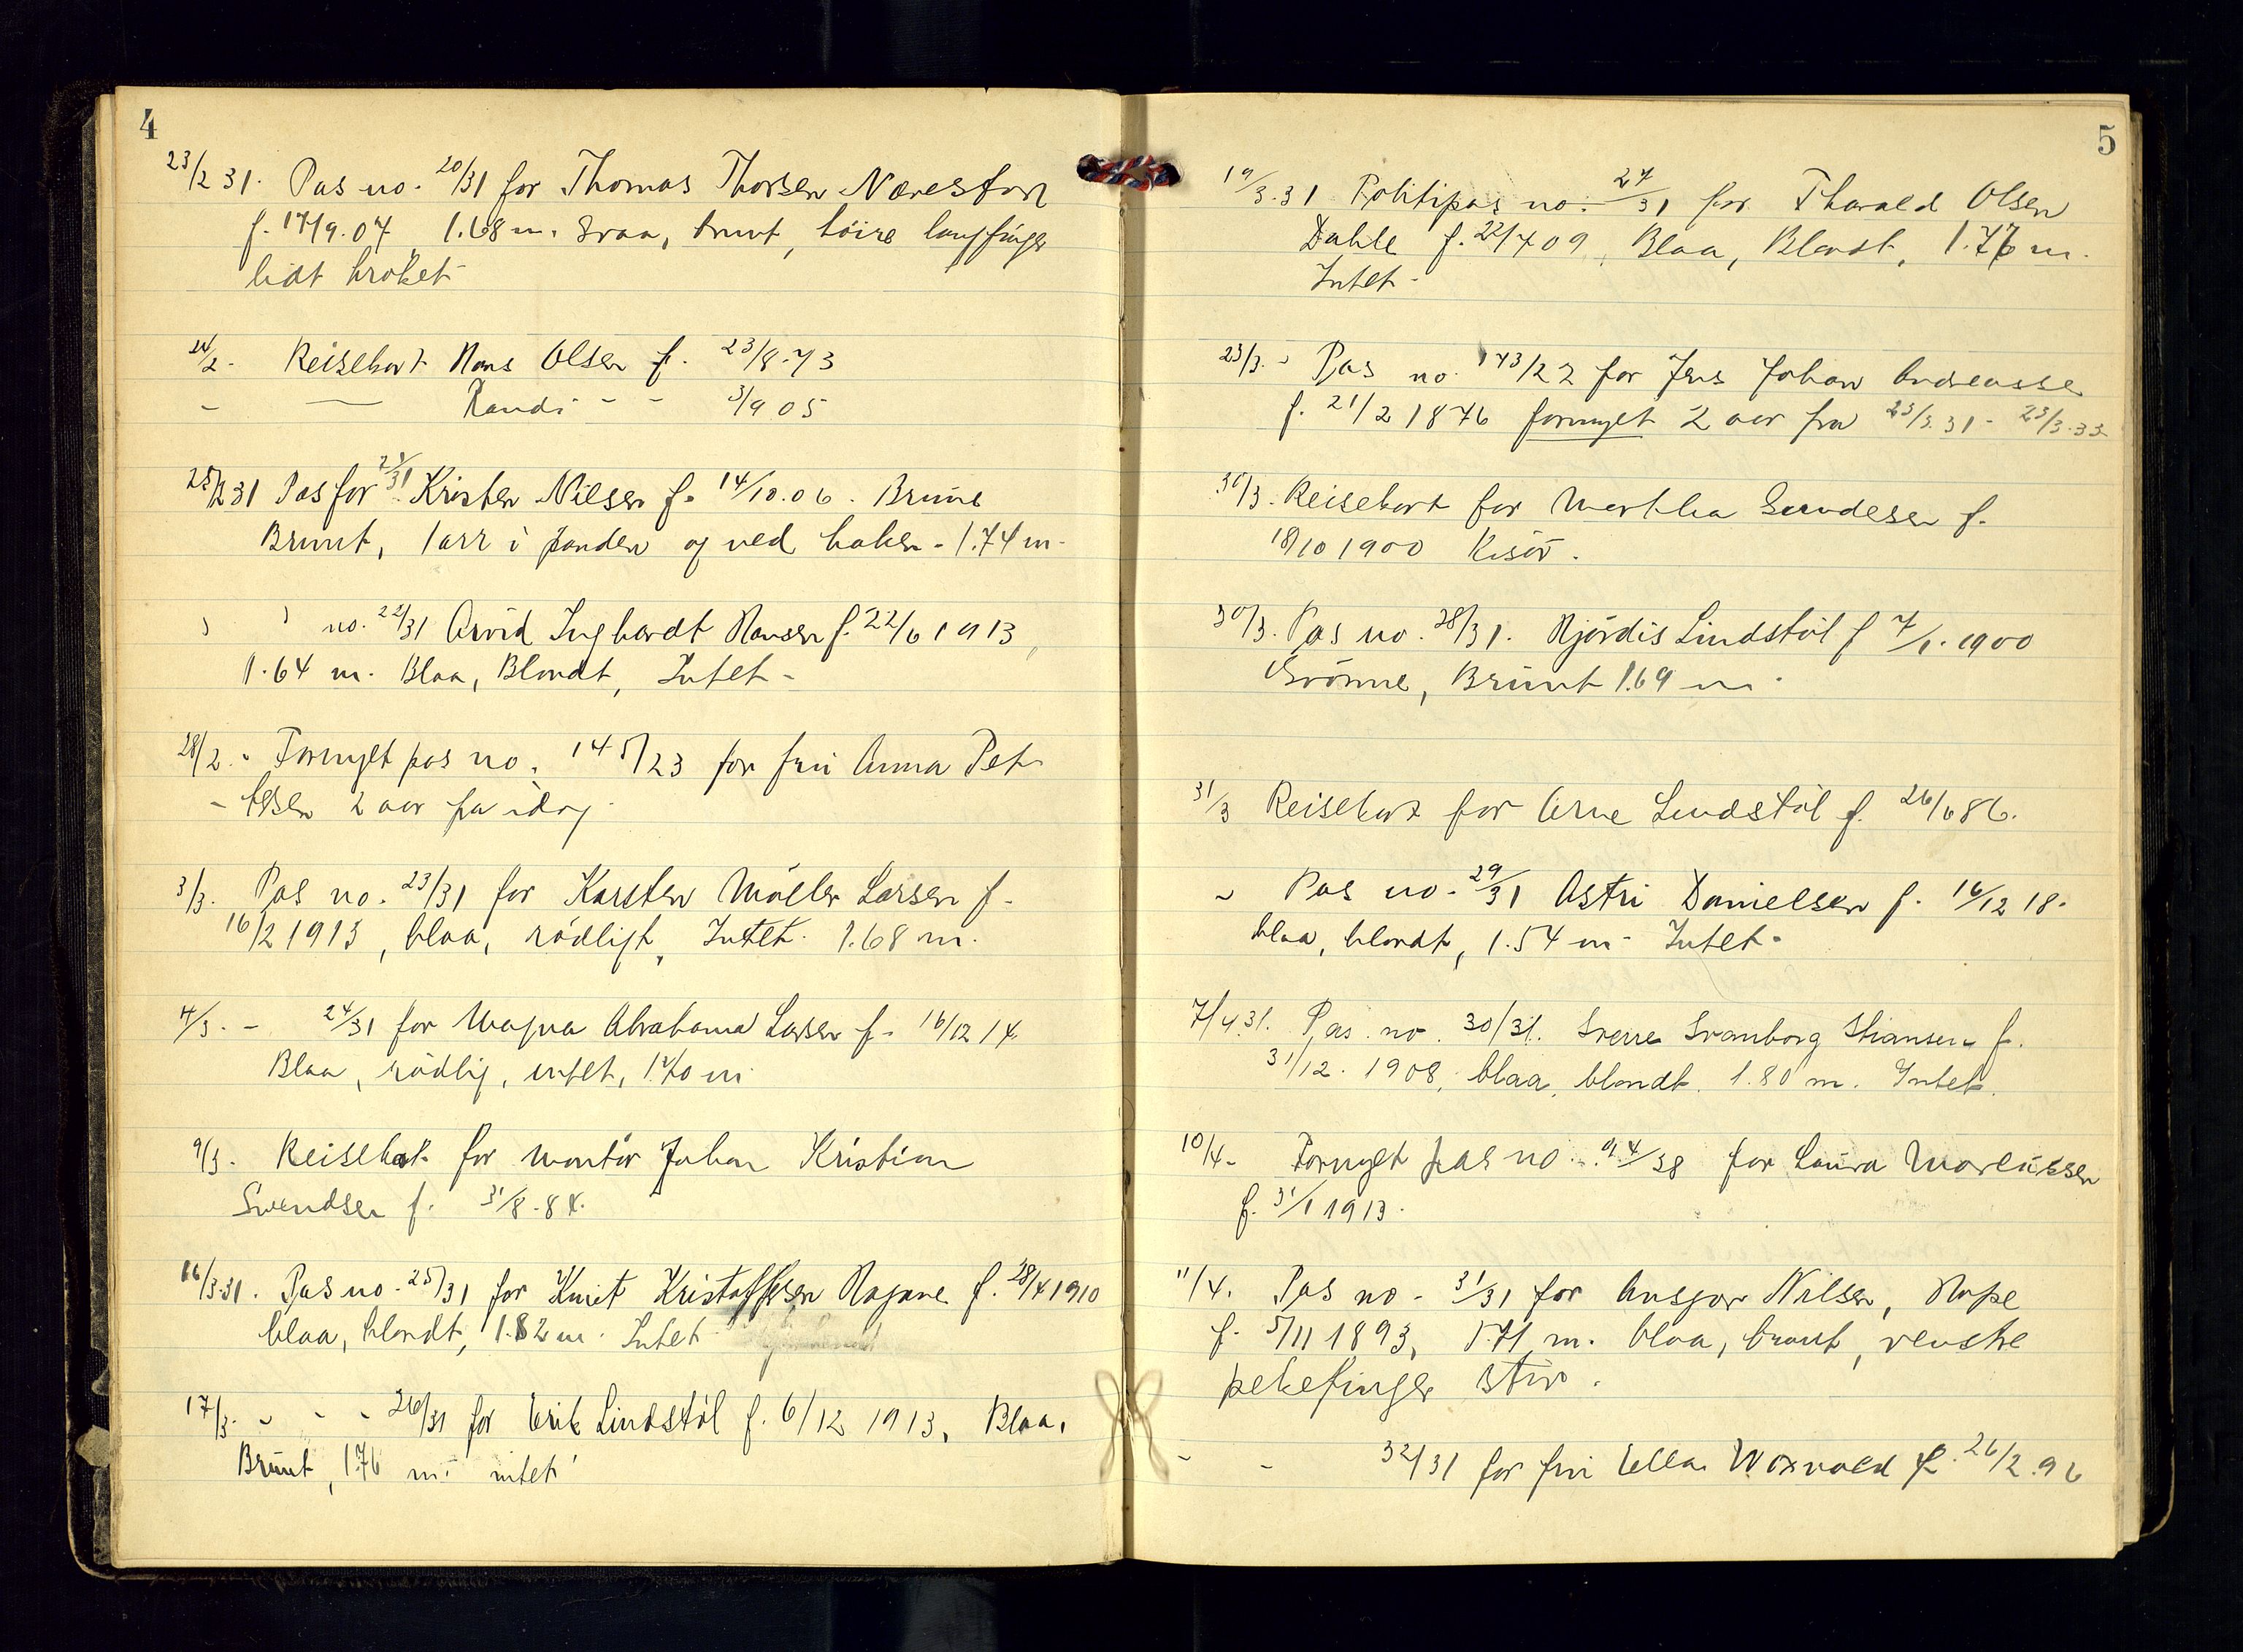 4
23/2 31. Pas no. 20/31 for Thomas Thorsen Neresfort
f. 17/9.07, 1.68 m. Graa, brunt, høire langfinger
lidt kroket
24/2. Reisekort Hans Olsen f. 23/8.73
- — Randi - - 3/9 05
25/2 31 Pas for 21/31 Kristen Nilsen f. 14/10.06. Brune
Brunt, 1 arr i panden og ved haken. 1.74 m.
" " no. 22/31 Arvid Inghardt Hansen f. 22/6 1913,
1.64 m. Blaa, Blondt, Intet.
28/2. " Fornyet pas no. 145/23 for fru Anna Pet-
- tersen 2 aar fra idag.
3/3. Pas no. 23/31 for Karsten Møller Larsen f.
16/2 1913, blaa, rødligt, Intet. 1.68 m.
4/3. - 24/31 for Magna Abrahama Larsen f. 16/12 14.
Blaa, rødlig, intet, 1.70 m
9/3. Reisekort for montør Johan Kristian
Svendsen f. 31/8.84.
16/3.31. Pas no. 25/31 for Knut Kristoffersen Hagane f. 28/4 1910
blaa, blondt, 1.82 m. Intet
17/3. - - - 26/31 for Erik Lindstøl f. 6/12 1913, Blaa,
Brunt, 1.76 m. intet
5
19/3.31 Politipas no. 27/31 for Tharald Olsen
Dahle f. 22/7 09, Blaa, Blondt, 1.76 m.
Intet.
23/3. - Pas no. 173/22 for Jens Johan Andreasse
f. 21/2 1876 fornyet 2 aar fra 23/3.31 - 23/3.33
30/3. Reisekort for Martha Gundesen f.
18/10 1900 Risør.
30/3. Pas no. 28/31. Hjørdis Lindstøl f 7/1. 1900
Grønne, Brunt 1.69 m.
31/3 Reisekort for Arne Lindstøl f. 26/6 86.
- Pas no. 29/31 Astri Danielsen f. 16/12 18.
blaa, blondt, 1.54 m. Intet.
7/4 31. Pas no. 30/31. Sverre Svanborg Stiansen f.
31/12. 1908, blaa, blondt. 1.80 m. Intet.
10/4. Fornyet pas no. 94/38 for Laura Marcussen
f. 31/1 1913.
11/4. Pas no. 31/31 for Ansgar Nilsen, Hope
f. 5/11 1893, 1.71 m. blaa, brunt, venstre
pekefinger stiv.
- - 32/31 for fru Ella Woxvold f. 26/2.96